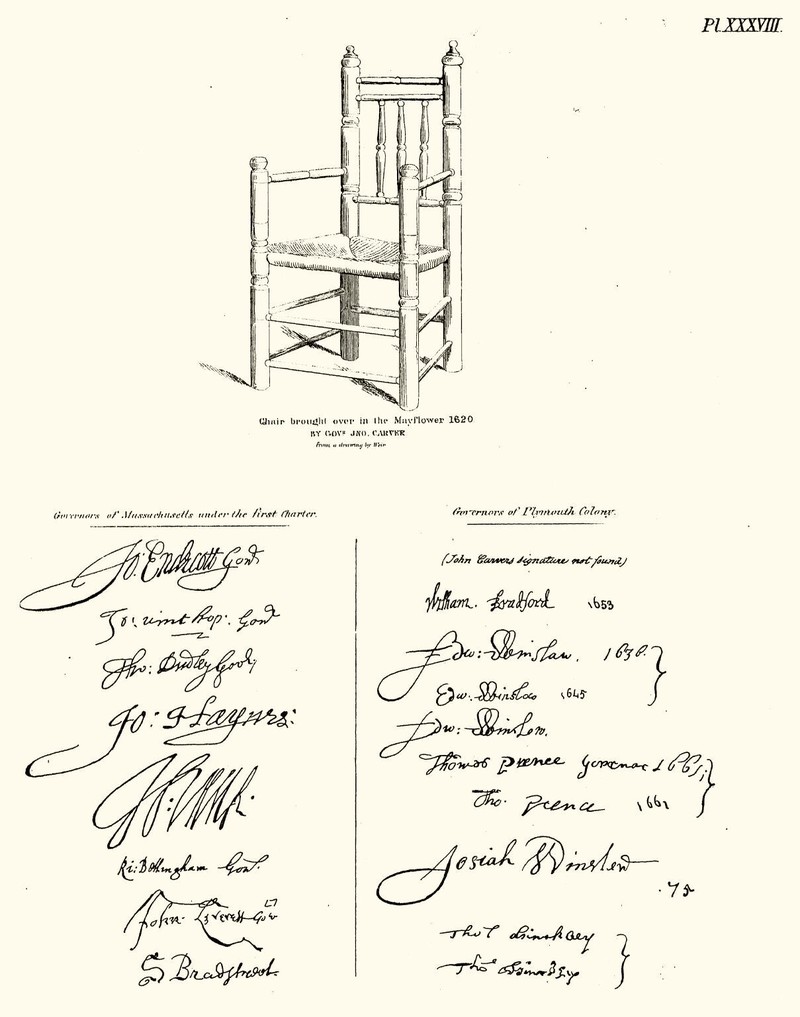 Pl. XXXVIII.
Chair brought over in the Mayflower 1620
BY GOVR JNO. CARVER
From a drawing by Weir
Governors of Massachusetts under the first Charter.
Jo: Endecott Govr
Jo: winthrop: Govr
Tho: Dudley Govr
Jo: Haynes:
Ri: Bellingham Govr.
John Leverett Govr
S Bradstreet.
Governors of Plymouth Colony.
(John Carvers signature not found)
William Bradford 1653
Edw: Winslow. 1636.
Edw: Winslow 1645
Edw: Winslow.
Thomas Prence 1661;
Tho. Prence 1661
Josiah Winslow
75